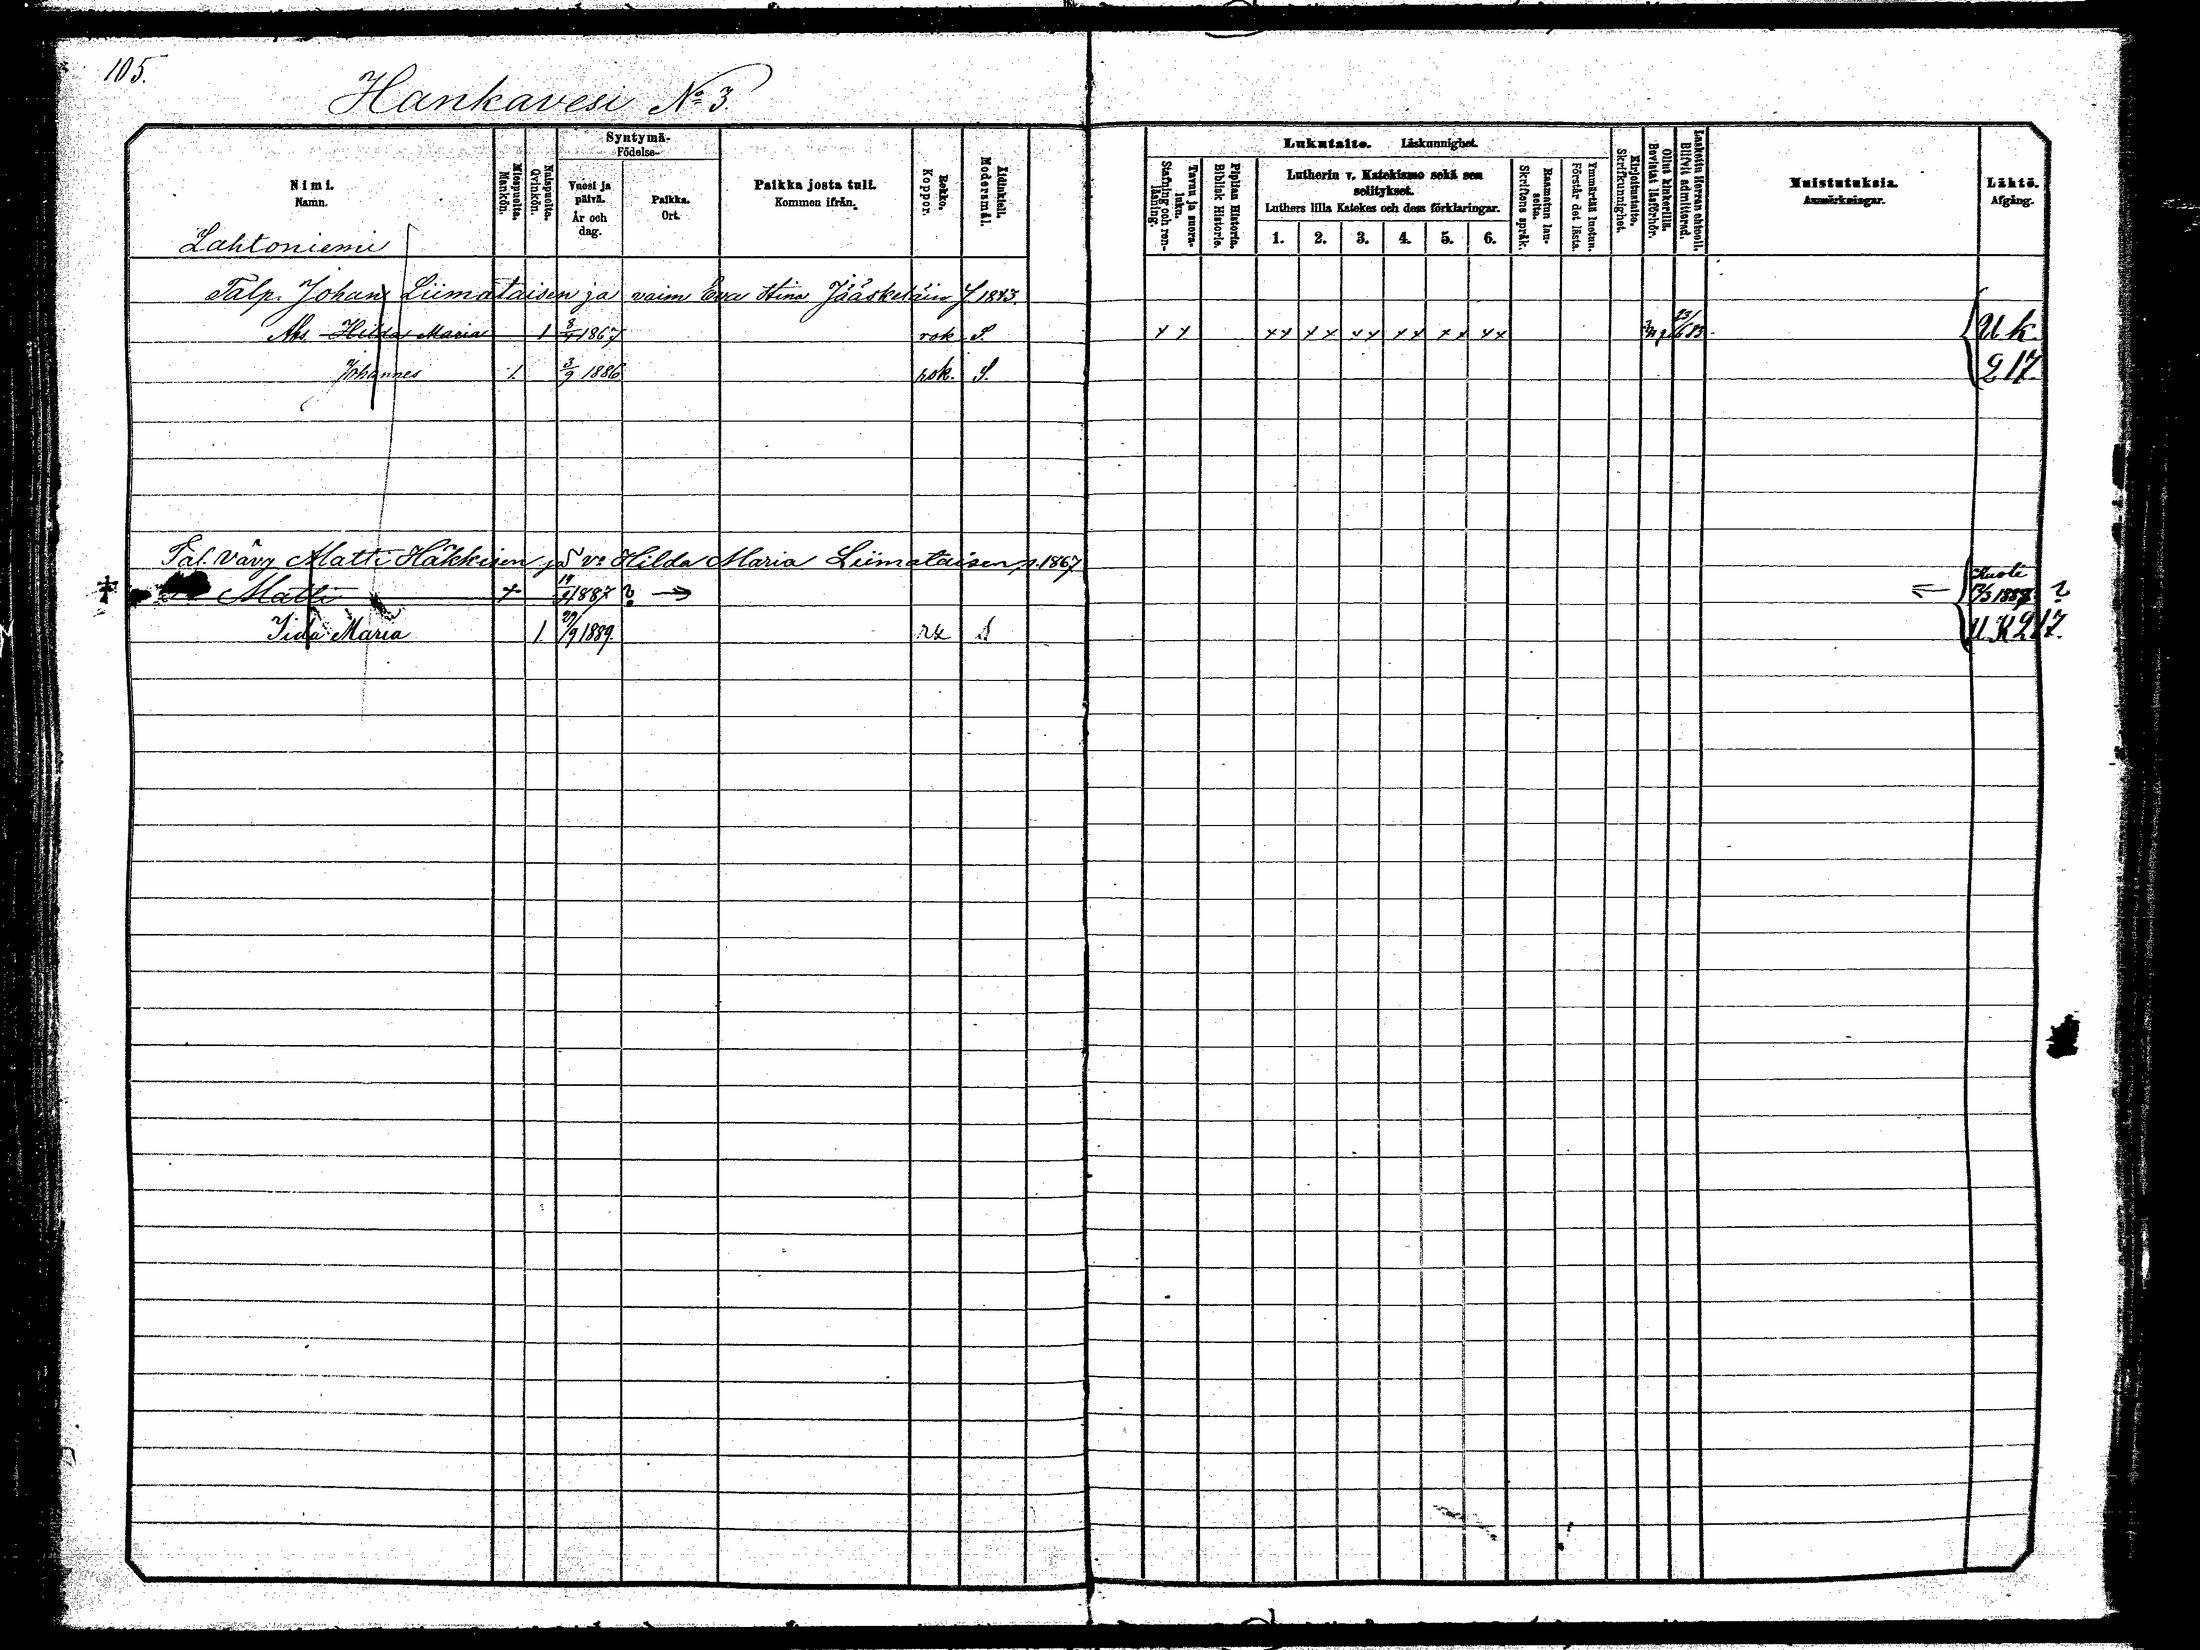 105.
Hankavesi No 3.
Syntymä-
Födelse-
Nimi.
Namn.
Miespuolta.
Mankön.
Naispuolta.
Qvinkön.
Vuosi ja päivä.
År och dag.
Paikka.
Ort.
Paikka josta tuli.
Kommen ifrån.
Rokko.
Koppor.
Äidinkieli.
Modersmål.
Lukutaito. Läskunnighet.
Tavuu ja suora-luku.
Stafning och ren-läsning.
Piplian Historia.
Biblisk Historie.
Lutherin v. Katekismo sekä sen selitykset.
Luthers lilla Katekes och dess förklaringar.
1. 2. 3. 4. 5. 6.
Raamatun lau-seita.
Skriftens språk.
Ymmärtää luetun.
Förstår det lästa.
Kirjoitustaito.
Skrifkunnighet.
Ollut kinkerillä.
Bevistat läsförhör.
Laskettu Herran ehtooll.
Blifvit admitterad.
Muistutuksia.
Anmärkningar.
Lähtö.
Afgång.
Lahtoniemi
Talp. Johan Liimataisen ja vaim Eva Stina Jääskeläin S. 1843.
Hilda Maria 1 1867 rok S. x x xx xx xx xx xx xx 23/6 83. U k.
Johannes 1. 3/9 1886 rok. S. 217.
Tal. Vävy Matti Häkkisen ja vo Hilda Maria Liimataisen s. 1867
Matti 1887 ? → Kuoli 1888 ?
Iida Maria 1. 29/9 1889. S U K 217.